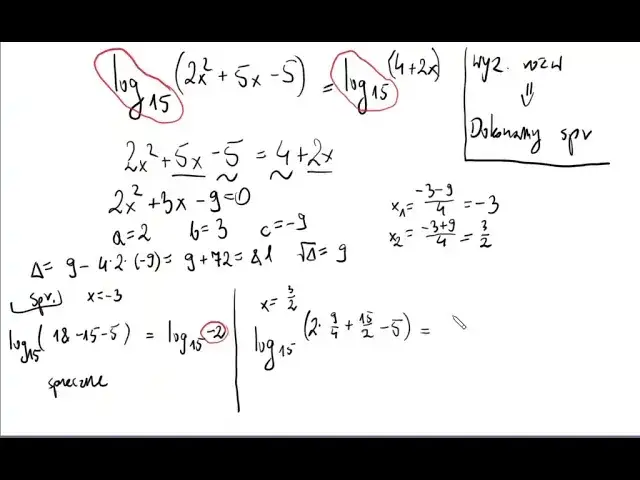 log₁₅(2x² + 5x - 5) = log₁₅(4+2x)
wyz. rozw
⇓
Dokonamy spr
2x² + 5x - 5 = 4 + 2x
2x² + 3x - 9 = 0
a = 2 b = 3 c = -9
Δ = 9 - 4·2·(-9) = 9 + 72 = 81 √Δ = 9
x₁ = (-3-9)/4 = -3
x₂ = (-3+9)/4 = 3/2
Spr. x = -3
log₁₅(18 - 15 - 5) = log₁₅ -2
sprzeczne
x = 3/2
log₁₅(2·9/4 + 15/2 - 5) =